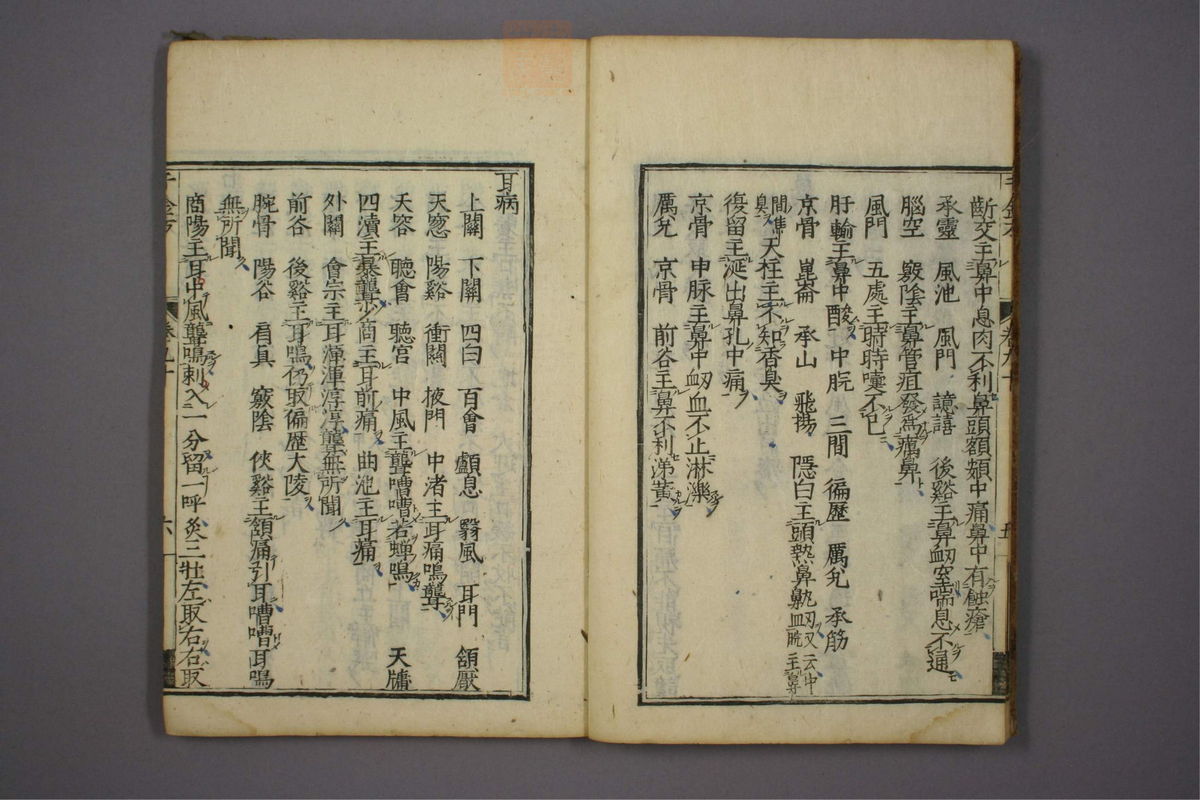 齗交主鼻中息肉不利鼻頭額頞中痛鼻中有蝕瘡
承靈　風池　風門　譩譆　後谿主鼻衄窒喘息不通
腦空　竅陰主鼻管疽發為癘鼻
風門　五處主時時嚏不已
肝輸主鼻中酸　中脘　三間　徧歷　厲兊　承筋
京骨　崑崙　承山　飛揚　隱白主頭熱鼻鼽衄又云中脘主鼻
間焦臭天柱主不知香臭
復留主涎出鼻孔中痛
京骨　申脉主鼻中衄血不止淋濼
厲兊　京骨　前谷主鼻不利涕黃
耳病
上關　下關　四白　百會　顱息　翳風　耳門　頷厭
天窓　陽谿　衝關　掖門　中渚主耳痛鳴聾
天容　聽會　聽宮　中風主聾嘈嘈若蟬鳴　天牖
四瀆主暴聾少商主耳前痛　曲池主耳痛
外關　會宗主耳渾渾淳淳聾無所聞
前谷　後谿主耳鳴仍取偏歷大陵
腕骨　陽谷　肩貞　竅陰　俠谿主頷痛引耳嘈嘈耳鳴
無所聞
商陽主耳中風聾鳴刺入一分留一呼灸三壯左取右右取